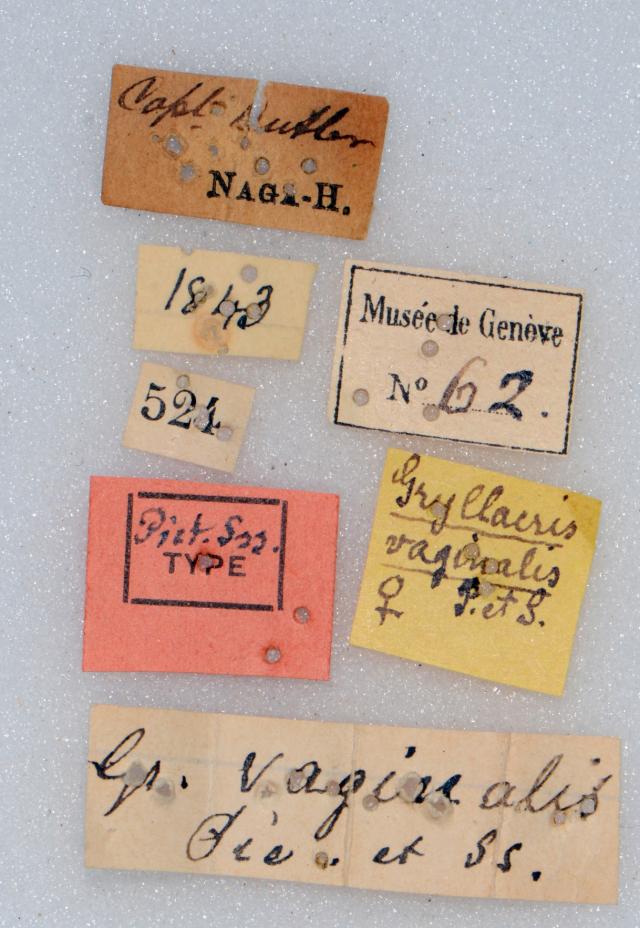 Capt. Butler
NAGA-H.
1843
Musée de Genève
Nº 62.
521
Pict. Sss.
TYPE
Gryllacris
vaginalis
♀ P. et S.
Gr. vaginalis
Pic. et Ss.